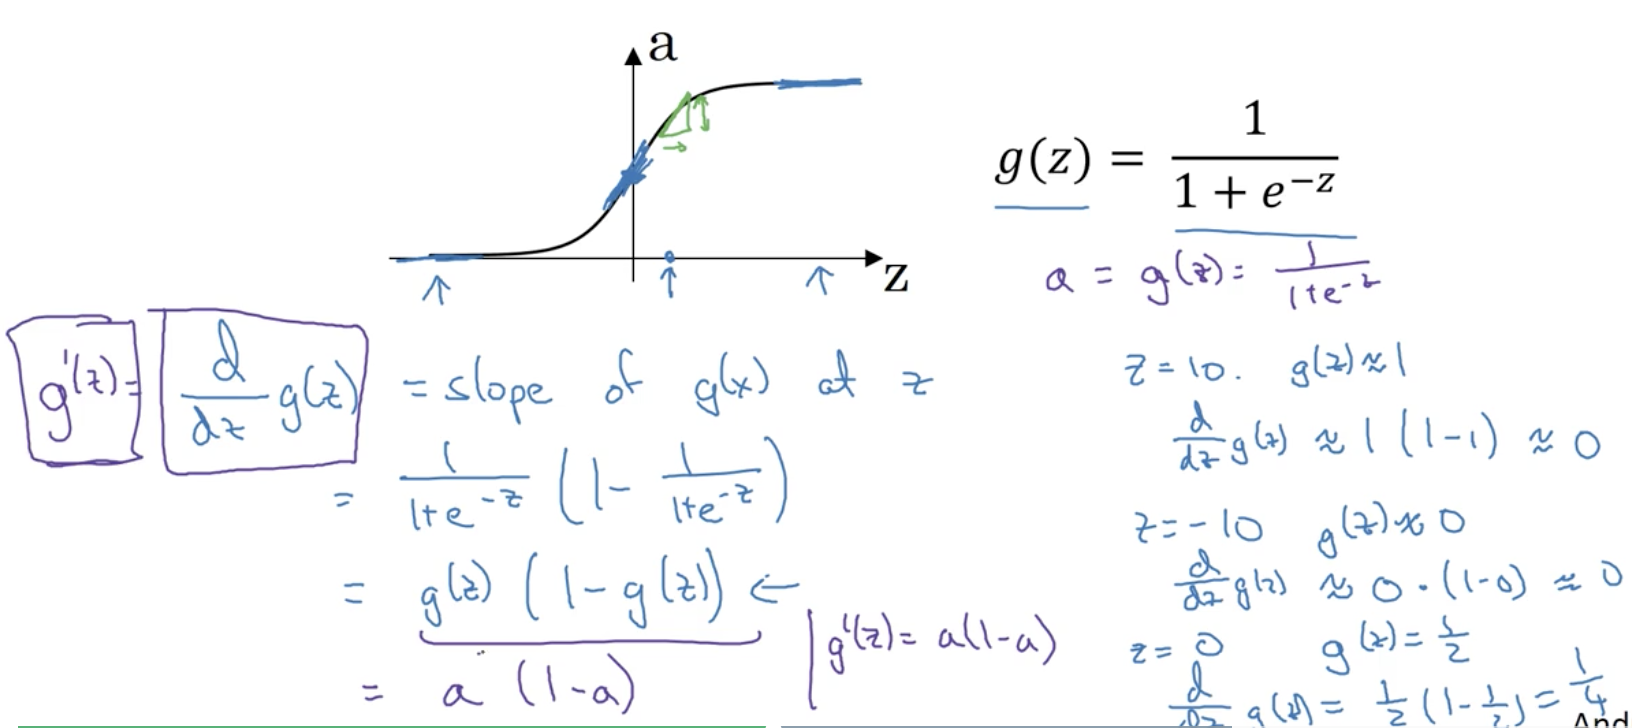 a
z
g(z) = 1 / (1 + e^{-z})
a = g(z) = 1 / (1+e^{-z})
g'(z) = d/dz g(z) = slope of g(x) at z
= 1/(1+e^{-z}) (1 - 1/(1+e^{-z}))
= g(z) (1 - g(z)) ←
= a (1-a)
g'(z) = a(1-a)
z = 10. g(z) ≈ 1
d/dz g(z) ≈ 1 (1-1) ≈ 0
z = -10 g(z) ≈ 0
d/dz g(z) ≈ 0 · (1-0) ≈ 0
z = 0 g(z) = 1/2
d/dz g(z) = 1/2 (1 - 1/2) = 1/4
And